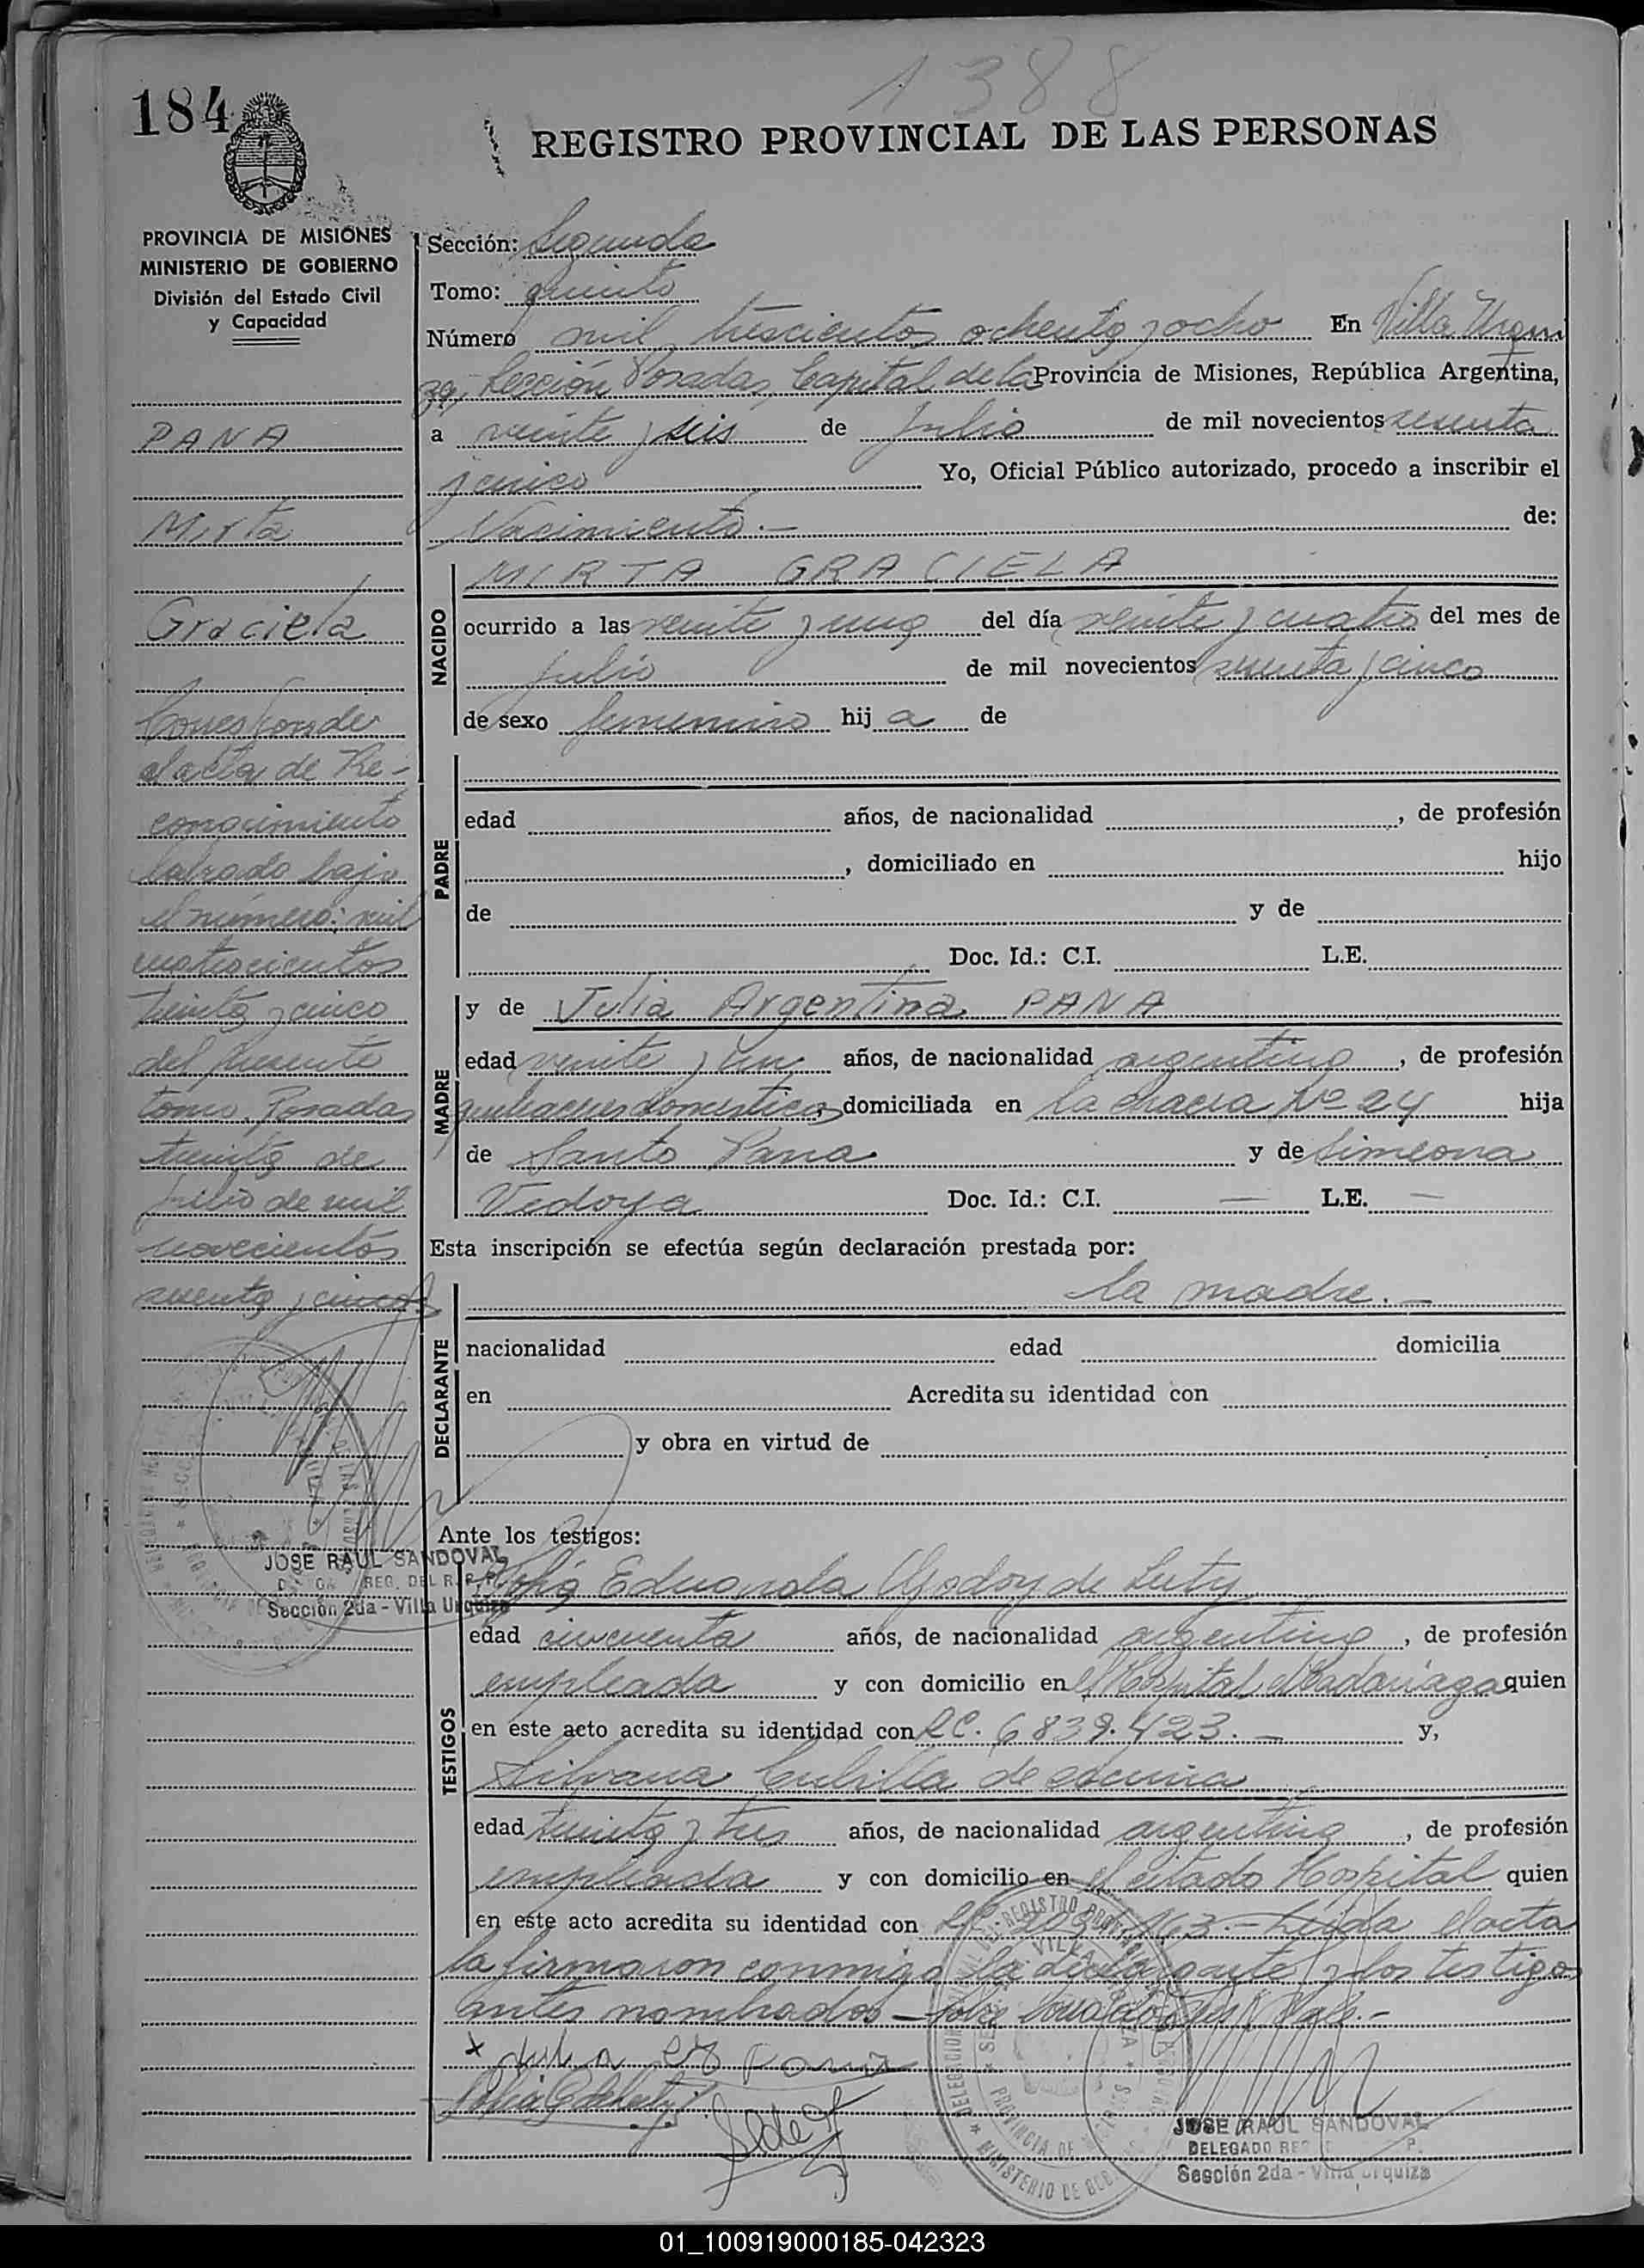 1388
184
REGISTRO PROVINCIAL DE LAS PERSONAS
PROVINCIA DE MISIONES
MINISTERIO DE GOBIERNO
División del Estado Civil
y Capacidad
PANA
Mirta
Graciela
Corresponde
al acta de Re-
conocimiento
labrado bajo
el número: mil
cuatrocientos
treinta y cinco
del presente
tomo. Posadas
treinta de
julio de mil
novecientos
sesenta y cinco
JOSE RAUL SANDOVAL
Sección 2da - Villa Urquiza
Sección: Segunda
Tomo: quinto
Número mil trescientos ochenta y ocho En Villa Urqui
za, Sección Posadas, Capital de la Provincia de Misiones, República Argentina,
a veinte y seis de Julio de mil novecientos sesenta
y cinco Yo, Oficial Público autorizado, procedo a inscribir el
Nacimiento.- de:
NACIDO
MIRTA GRACIELA
ocurrido a las veinte y una del día veinte y cuatro del mes de
julio de mil novecientos sesenta y cinco
de sexo femenino hij a de
PADRE
edad años, de nacionalidad , de profesión
, domiciliado en hijo
de y de
Doc. Id.: C.I. L.E.
MADRE
y de Julia Argentina PANA
edad veinte y un años, de nacionalidad argentina, de profesión
quehaceres domesticos domiciliada en la chacra Nº 24 hija
de Santo Pana y de Simeona
Vedoya Doc. Id.: C.I. — L.E. —
Esta inscripción se efectúa según declaración prestada por:
DECLARANTE
la madre.-
nacionalidad edad domicilia
en Acredita su identidad con
y obra en virtud de
Ante los testigos:
TESTIGOS
Eduarda Godoy de Luty
edad cincuenta años, de nacionalidad argentina, de profesión
empleada y con domicilio en el Hospital Madariaga quien
en este acto acredita su identidad con LC. 6839.423.- y,
Silvana de
edad treinta y tres años, de nacionalidad argentina, de profesión
empleada y con domicilio en el citado Hospital quien
en este acto acredita su identidad con 163.- Leída el acta
la firmaron conmigo la declarante y los testigos
antes nombrados - Vale.-
JOSE RAUL SANDOVAL
DELEGADO
Sección 2da - Villa Urquiza
01_100919000185-042323